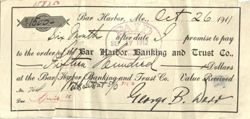 $1500.00 Bar Harbor, Me., Oct 26 1911
Six Months after date I promise to pay
to the order of the Bar Harbor Banking and Trust Co.,
Fifteen Hundred Dollars
at the Bar Harbor Banking and Trust Co. Value Received
No.
Due George B. Dorr